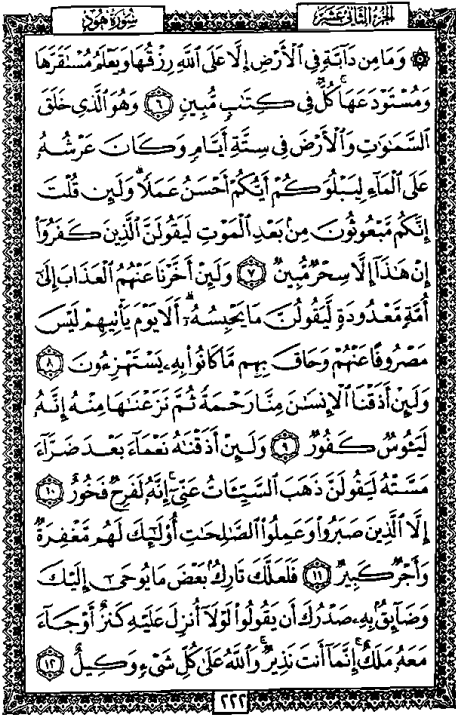 الجزء الثاني عشر
سورة هود
۞ وَمَا مِن دَآبَّةٍ فِي الْأَرْضِ إِلَّا عَلَى اللَّهِ رِزْقُهَا وَيَعْلَمُ مُسْتَقَرَّهَا
وَمُسْتَوْدَعَهَا ۚ كُلٌّ فِي كِتَٰبٍ مُّبِينٍ ٦ وَهُوَ الَّذِي خَلَقَ
السَّمَٰوَٰتِ وَالْأَرْضَ فِي سِتَّةِ أَيَّامٍ وَكَانَ عَرْشُهُ
عَلَى الْمَآءِ لِيَبْلُوَكُمْ أَيُّكُمْ أَحْسَنُ عَمَلًا ۗ وَلَئِن قُلْتَ
إِنَّكُم مَّبْعُوثُونَ مِنۢ بَعْدِ الْمَوْتِ لَيَقُولَنَّ الَّذِينَ كَفَرُوٓا۟
إِنْ هَٰذَآ إِلَّا سِحْرٌ مُّبِينٌ ٧ وَلَئِنْ أَخَّرْنَا عَنْهُمُ الْعَذَابَ إِلَىٰٓ
أُمَّةٍ مَّعْدُودَةٍ لَّيَقُولُنَّ مَا يَحْبِسُهُۥٓ ۗ أَلَا يَوْمَ يَأْتِيهِمْ لَيْسَ
مَصْرُوفًا عَنْهُمْ وَحَاقَ بِهِم مَّا كَانُوا۟ بِهِۦ يَسْتَهْزِءُونَ ٨
وَلَئِنْ أَذَقْنَا الْإِنسَٰنَ مِنَّا رَحْمَةً ثُمَّ نَزَعْنَٰهَا مِنْهُ إِنَّهُۥ
لَيَـُٔوسٌ كَفُورٌ ٩ وَلَئِنْ أَذَقْنَٰهُ نَعْمَآءَ بَعْدَ ضَرَّآءَ
مَسَّتْهُ لَيَقُولَنَّ ذَهَبَ السَّيِّـَٔاتُ عَنِّيٓ ۚ إِنَّهُۥ لَفَرِحٌ فَخُورٌ ١٠
إِلَّا الَّذِينَ صَبَرُوا۟ وَعَمِلُوا۟ الصَّٰلِحَٰتِ أُو۟لَٰٓئِكَ لَهُم مَّغْفِرَةٌ
وَأَجْرٌ كَبِيرٌ ١١ فَلَعَلَّكَ تَارِكٌۢ بَعْضَ مَا يُوحَىٰٓ إِلَيْكَ
وَضَآئِقٌۢ بِهِۦ صَدْرُكَ أَن يَقُولُوا۟ لَوْلَآ أُنزِلَ عَلَيْهِ كَنزٌ أَوْ جَآءَ
مَعَهُۥ مَلَكٌ ۚ إِنَّمَآ أَنتَ نَذِيرٌ ۚ وَاللَّهُ عَلَىٰ كُلِّ شَىْءٍ وَكِيلٌ ١٢
٢٢٢